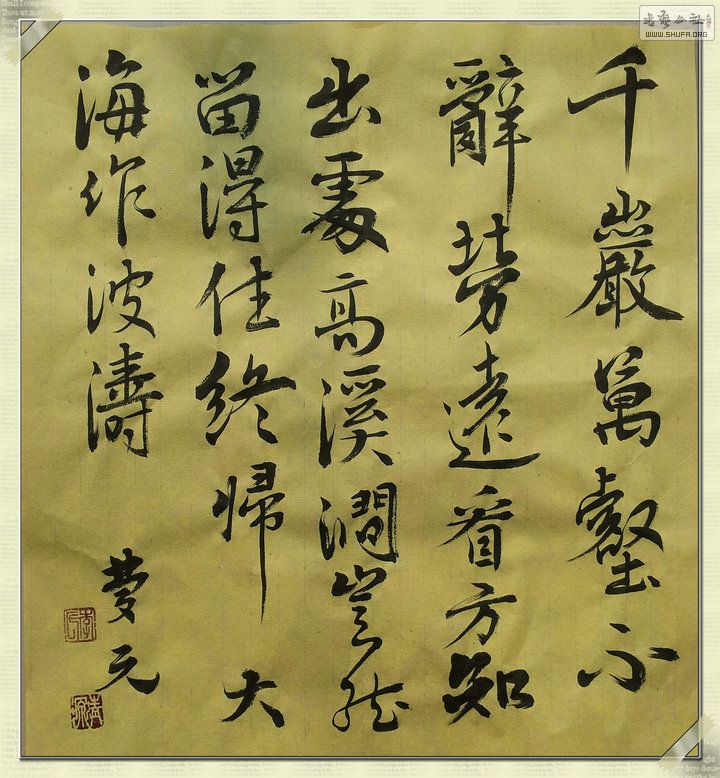 千巖萬壑不
辭勞遠看方知
出處高溪澗豈能
留得住終歸大
海作波濤
夢元
書藝公社
WWW.SHUFA.ORG